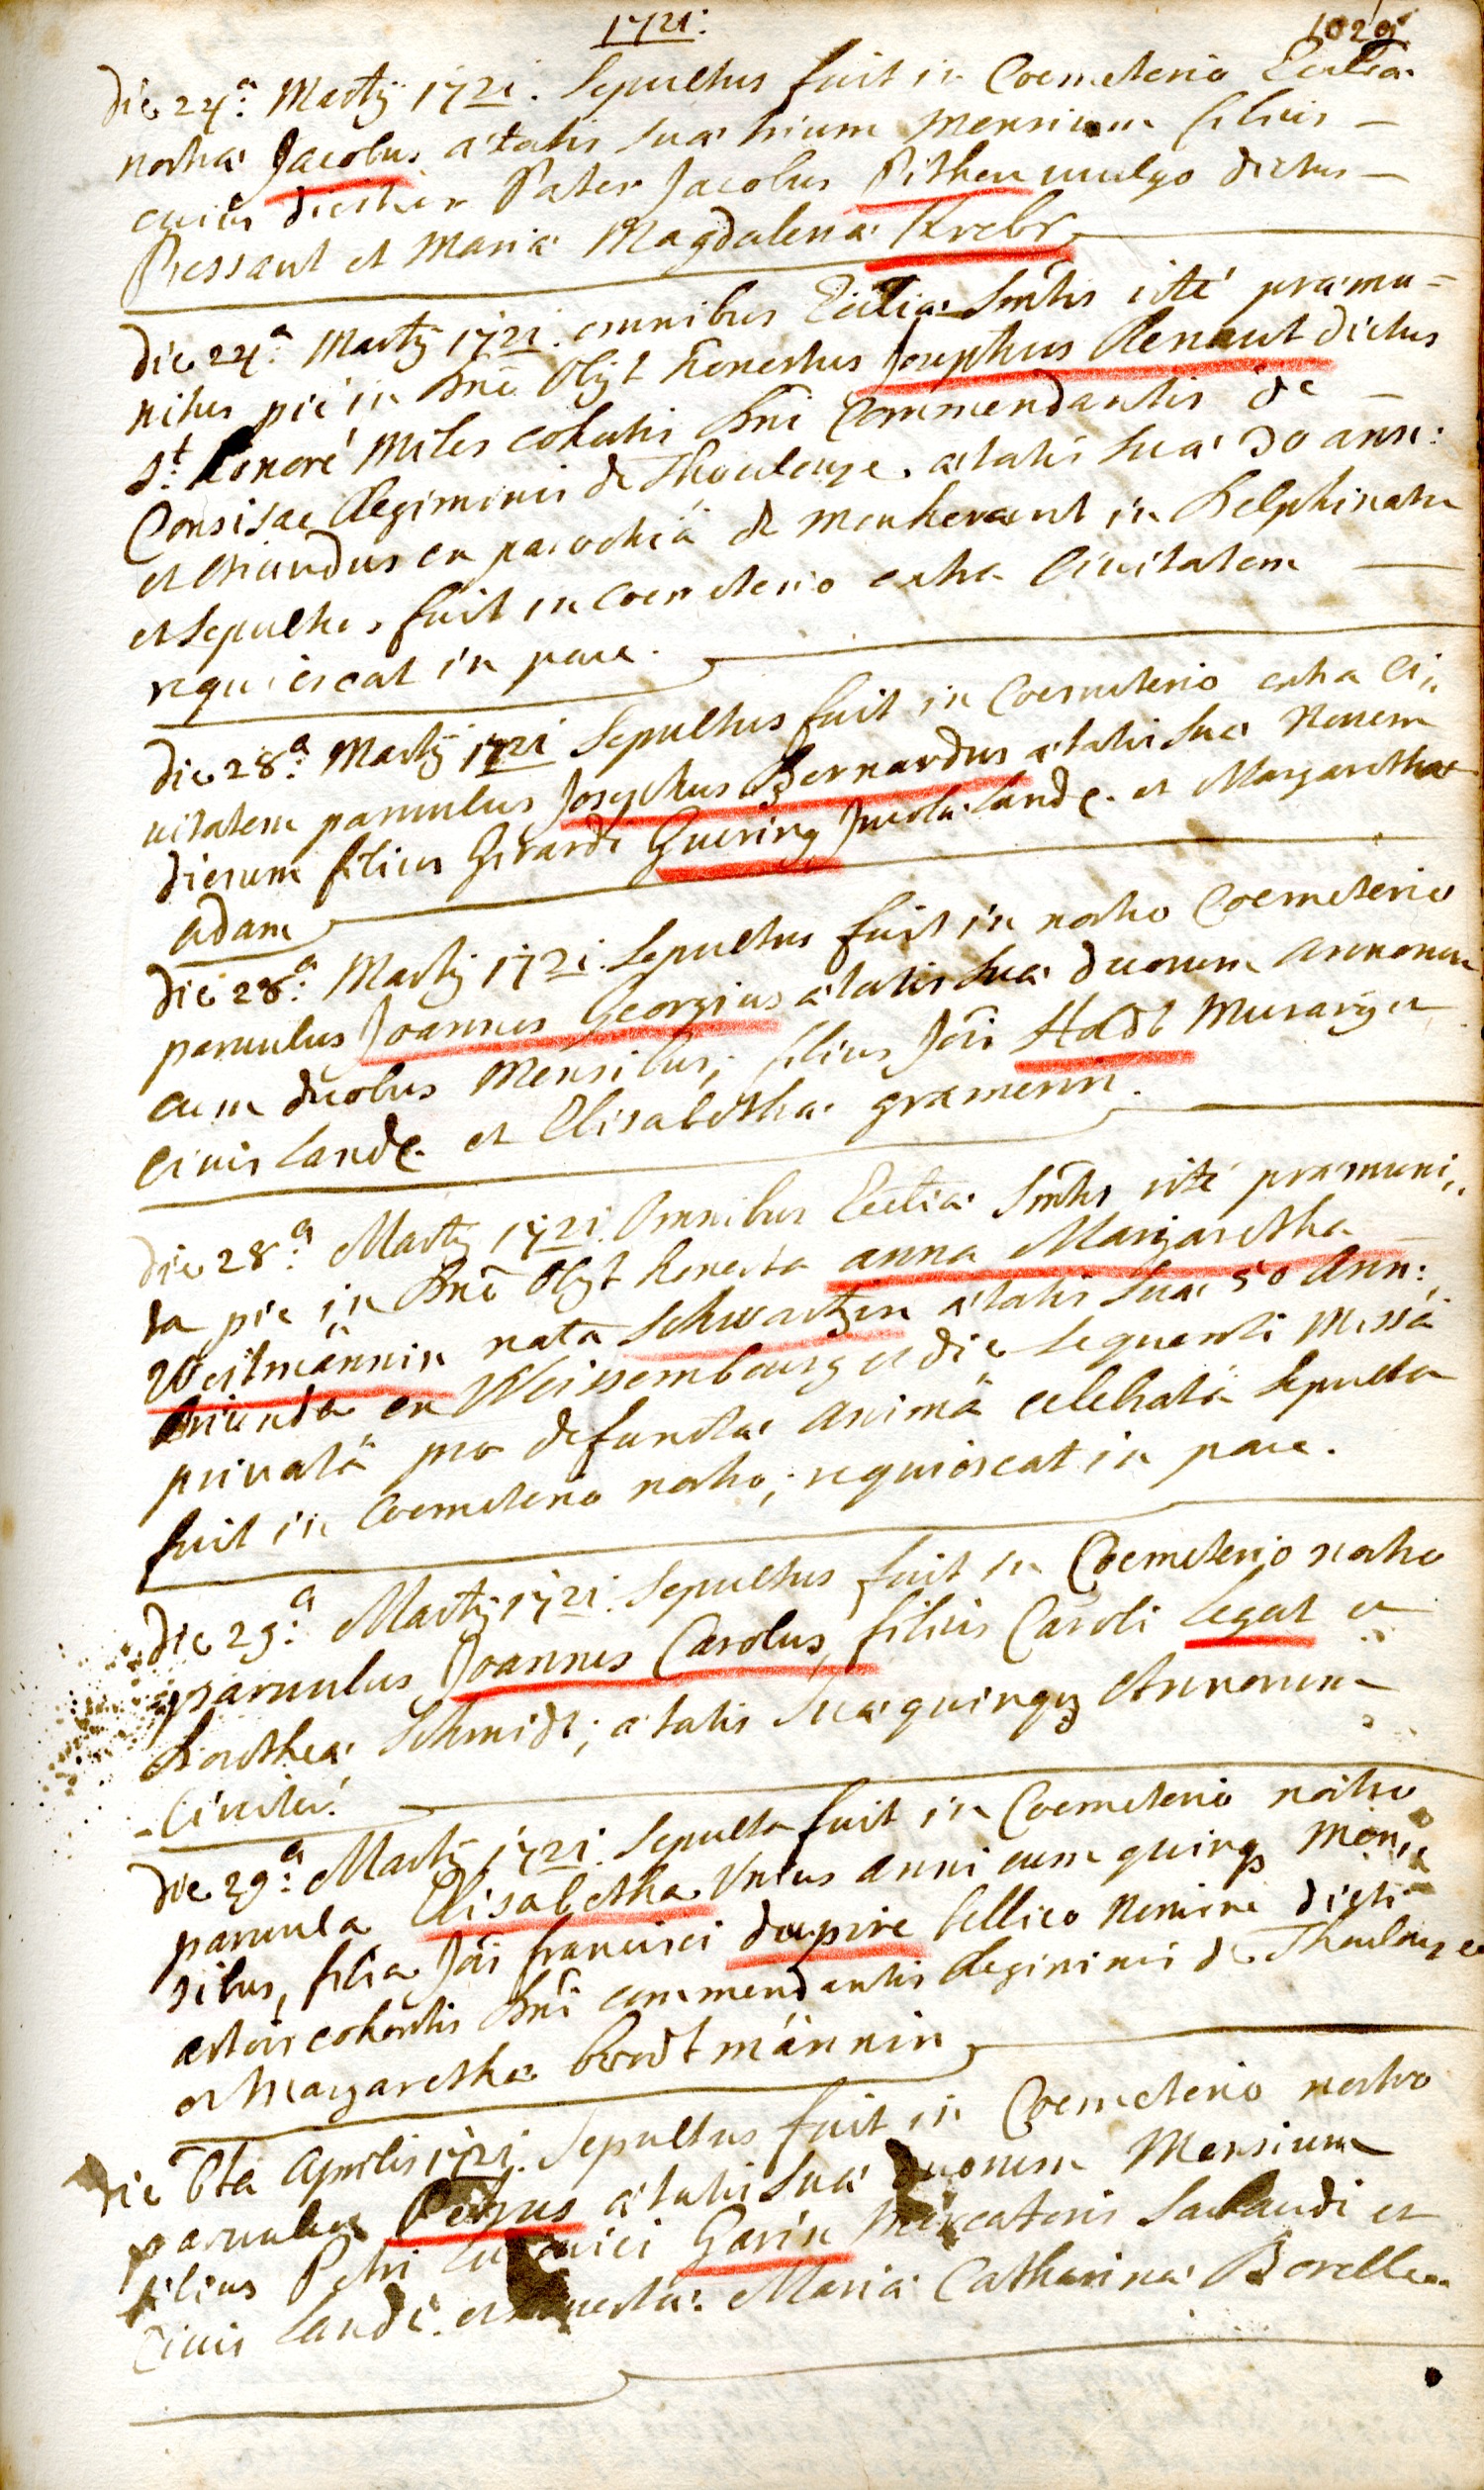 1721.
1029
die 24.ª Martÿ 1721. Sepultus fuit in Coemeterio Ecclia
nostra Jacobus ætatis suæ trium Mensium filius —
cuius dicitur Pater Jacobus Pithen vulgo dictus —
Pressant et Maria Magdalena Krebs
die 24.ª Martÿ 1721. omnibus Ecclia Smtis rité præmu=
nitus pié in Dnō Obÿt honestus Josephus Renaut dictus
St. honoré Miles cohortis Dni Commendantis de —
Consisac Regiminis de Thoulouze. ætatis suæ 30 ann:
et oriundus ex parochiâ de monheraut in Delphinatu
et Sepultus fuit in Coemeterio extra Civitatem —
requiescat in pace.
die 28.ª Martÿ 1721 Sepultus fuit in Coemeterio extra Ci„
vitatem parvulus Josephus Bernardus ætatis suæ Novem
dierum filius Girardi Guering Incolæ Landç. et Margaretha
adam
die 28.ª Martÿ 1721. Sepultus fuit in nostro Coemeterio
parvulus Joannes Georgius ætatis suæ duorum annorum
cum duobus Mensibus, filius Jōis Hadt Murarÿ et
Civis Landç. et Elisabetha gramerin.
die 28.ª Martÿ 1721. Omnibus Ecclia Smtis rité præmuni„
ta pie in Dnō Obÿt honesta anna Margaretha —
Westmännin nata Schwartzin ætatis suæ 50 Ann:
Oriunda ex Weissembourg et die sequenti Missâ
privatâ pro defunctæ animâ celebratâ Sepulta
fuit in Coemeterio nostro; requiescat in pace.
die 29.ª Martÿ 1721. Sepultus fuit in Coemeterio nostro
parvulus Joannes Carolus, filius Caroli Legat et
Dorothea Schmidt; ætatis suæ quinqꝫ Annorum
Circiter.
die 29.ª Martÿ 1721. Sepulta fuit in Coemeterio nostro
parvula Elisabetha Unius anni cum quinqꝫ Men„
sibus, filia Jōis francisci dupire bellico Nomine dicti
cohortis Dni commendantis Regiminis de Thoulouze
et Margaretha brodtmännin
die 6ta Aprilis 1721. Sepultus fuit in Coemeterio nostro
parvulus Petrus ætatis suæ duorum Mensium
filius Petri Ludovici Garin Mercatoris Sabaudi et
Civis Landç. et honesta Maria Catharina Borelle